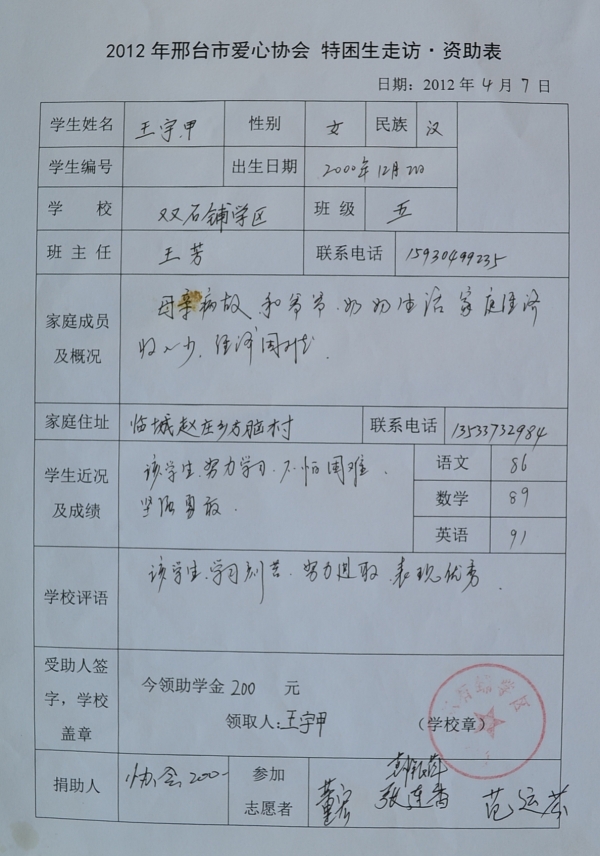 2012年邢台市爱心协会 特困生走访·资助表
日期：2012年4月7日
学生姓名 王宇甲 性别 女 民族 汉
学生编号 出生日期 2000年12月20日
学校 双石铺学区 班级 五
班主任 王芳 联系电话 15930499235
家庭成员及概况
母亲病故，和爷爷、奶奶生活 家庭经济
收入少，经济困难
家庭住址 临城赵庄乡方脑村 联系电话 13533732984
学生近况及成绩
该学生努力学习，不怕困难，
坚强勇敢.
语文 86
数学 89
英语 91
学校评语
该学生学习刻苦，努力进取，表现优秀.
受助人签字，学校盖章
今领助学金200 元
领取人：王宇甲 （学校章）
捐助人 协会200- 参加志愿者 张连香 范运芬